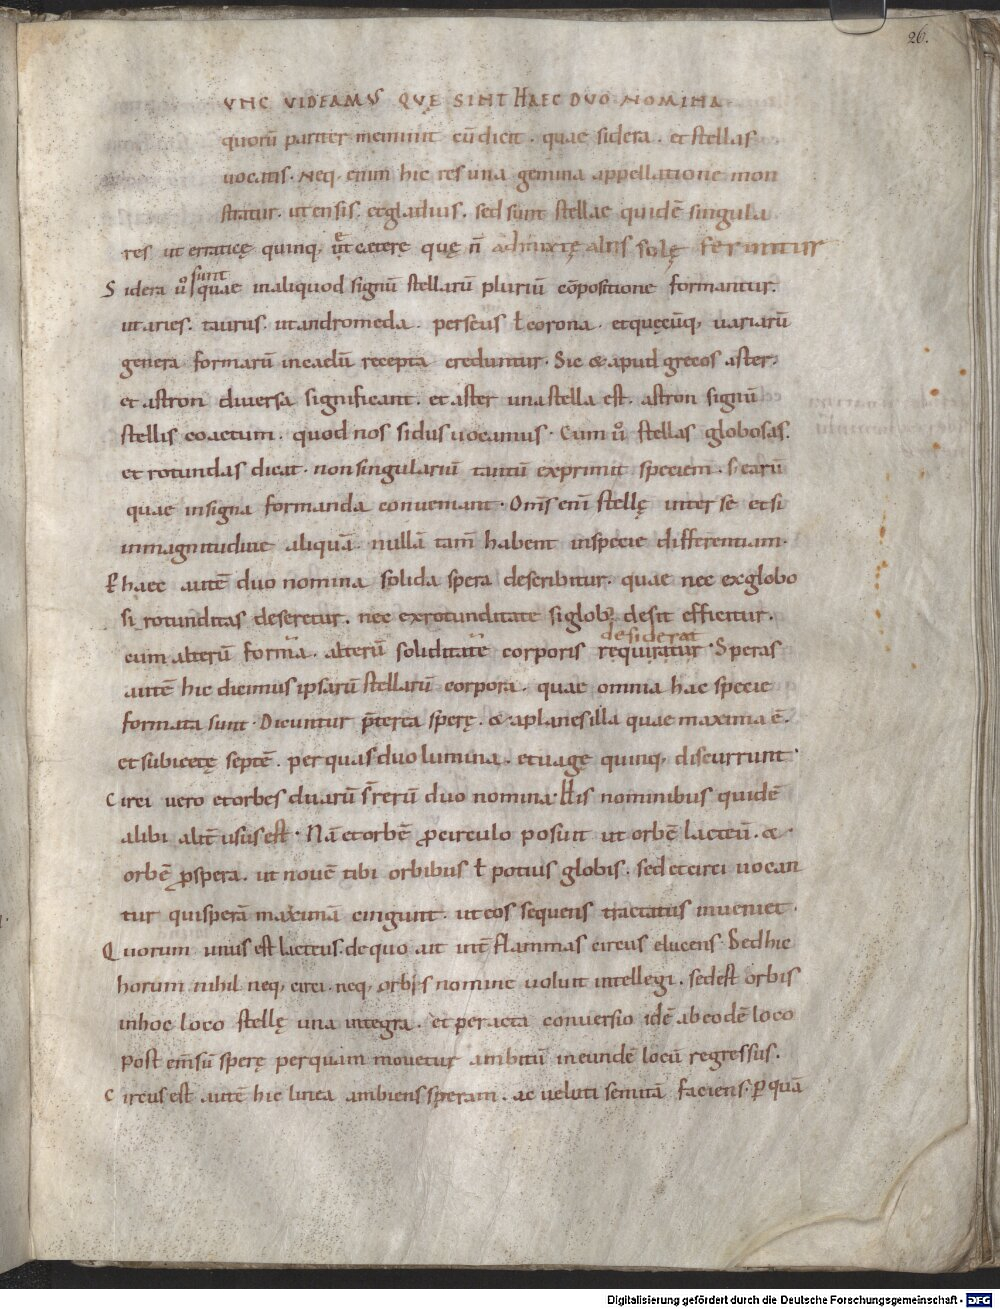 26.
UNC UIDEAMUS QUĘ SINT HAEC DUO NOMINA
quorū pariter meminit cū dicit . quae sidera . et stellas
uocatis . Neq; enim hic res una gemina appellatione mon
stratur . ut ensis . et gladius . sed sunt stellae quidē singula
res ut erraticę quinq; ut cetere quę ñ admixtę aliis solę feruntur
Sidera ů sunt quae in aliquod signū stellarū pluriū cōpositione formantur.
ut aries . taurus . ut andromeda . perseus ł corona . et quęcūq; uariarū
genera formarū in caelū recepta creduntur . Sic & apud grecos aster .
et astron diuersa significant . et aster una stella est . astron signū
stellis coactum . quod nos sidus uocamus . Cum ů stellas globosas .
et rotundas dicat . non singulariū tantū exprimit speciem . s; earū
quae insigna formanda conueniant . Oms̄ enī stellę inter se etsi
in magnitudine aliquā . nullā tam̄ habent in specie differentiam .
P haec autē duo nomina solida spera describitur . quae nec ex globo
si rotunditas deseretur . nec ex rotunditate si glob; desit efficitur .
desiderat
cum alterū forma . alterū soliditate corporis requiratur . Speras
autē hic dicimus ipsarū stellarū corpora . quae omnia hac specie
formata sunt . Dicuntur p̄terea sperę . & aplanes illa quae maxima ē .
et subiectę septē . per quas duo lumina . et uagę quinq; discurrunt .
Circi uero et orbes duarū s̄ rerū duo nomina . His nominibus quidē
alibi alit̄ usus est . Nā et orbē p circulo posuit ut orbē lacteū . &
orbē p spera . ut nouē tibi orbibus ł potius globis . sed et circi uocan
tur qui sperā maximā cingunt . ut eos sequens tractatus inueniet .
Quorum unus est lacteus . de quo ait int̄ flammas circus elucens . Sed hic
horum nihil neq; circi . neq; orbis nomine uoluit intellegi . sed est orbis
in hoc loco stellę una integra . et peracta conuersio idē ab eodē loco
post emsū sperę per quam mouetur ambitū in eundē locū regressus .
Circus est autē hic linea ambiens speram . ac ueluti semitā faciens . p quā
Digitalisierung gefördert durch die Deutsche Forschungsgemeinschaft - DFG